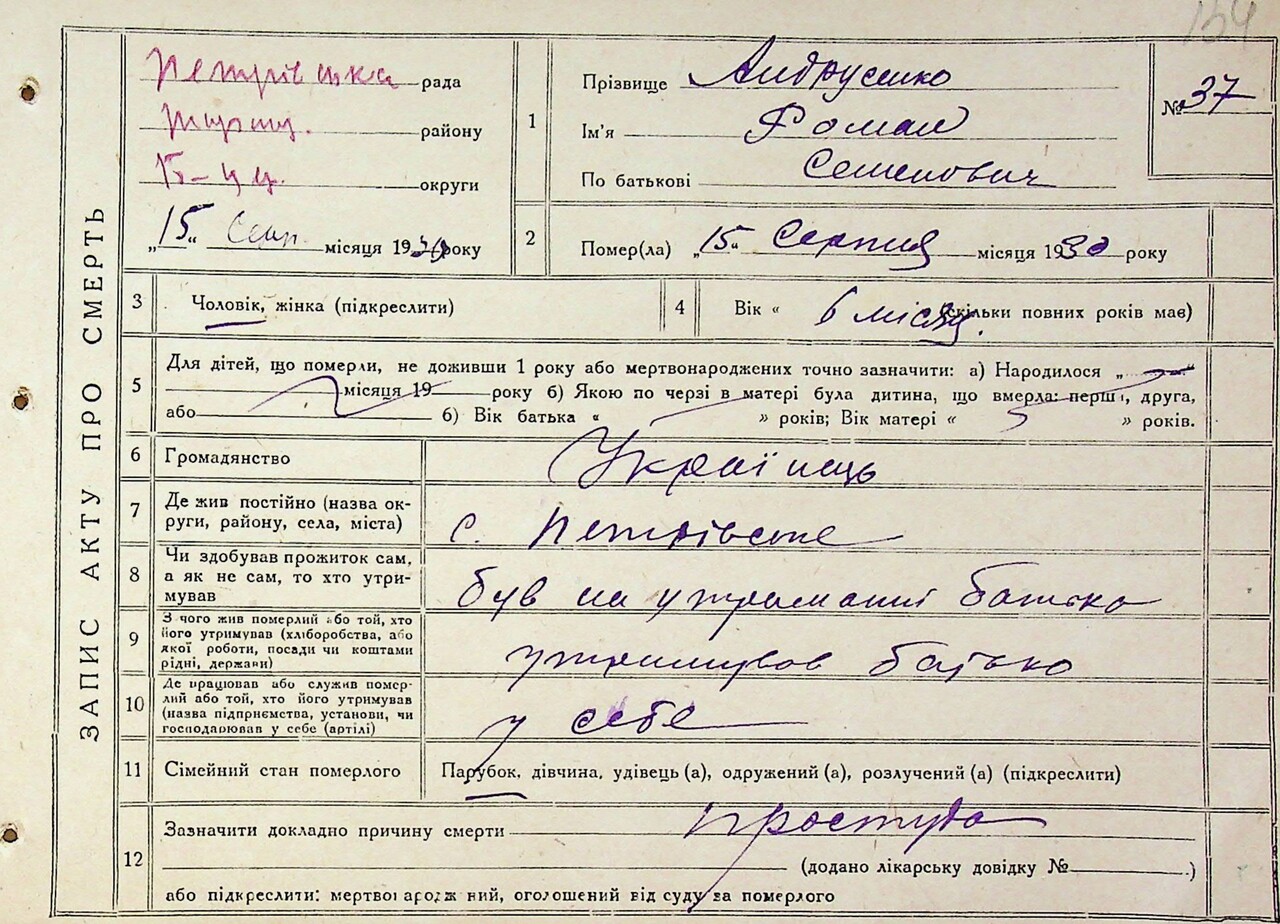 154
ЗАПИС АКТУ ПРО СМЕРТЬ
Петрівська рада
району
округи
„15“ Серп. місяця 1930 року
1
Прізвище Андрусенко
Ім'я Роман
По батькові Семенович
№ 37
2
Помер(ла) „15“ Серпня місяця 1930 року
3
Чоловік, жінка (підкреслити)
4
Вік « 6 місяц. (скільки повних років має)
5
Для дітей, що померли, не доживши 1 року або мертвонароджених точно зазначити: а) Народилося „ “
місяця 19 року б) Якою по черзі в матері була дитина, що вмерла: перша, друга,
або б) Вік батька « » років; Вік матері « » років.
6
Громадянство
Українець
7
Де жив постійно (назва ок-
руги, району, села, міста)
с. Петрівське
8
Чи здобував прожиток сам,
а як не сам, то хто утри-
мував
був на утриманні батька
9
З чого жив померлий або той, хто
його утримував (хліборобства, або
якої роботи, посади чи коштами
рідні, держави)
утримував батько
10
Де працював або служив помер-
лий або той, хто його утримував
(назва підприємства, установи, чи
господарював у себе (артілі)
у себе
11
Сімейний стан померлого
Парубок, дівчина, удівець (а), одружений (а), розлучений (а) (підкреслити)
12
Зазначити докладно причину смерти простуда
(додано лікарську довідку № .)
або підкреслити: мертвонароджений, оголошений від суду за померлого